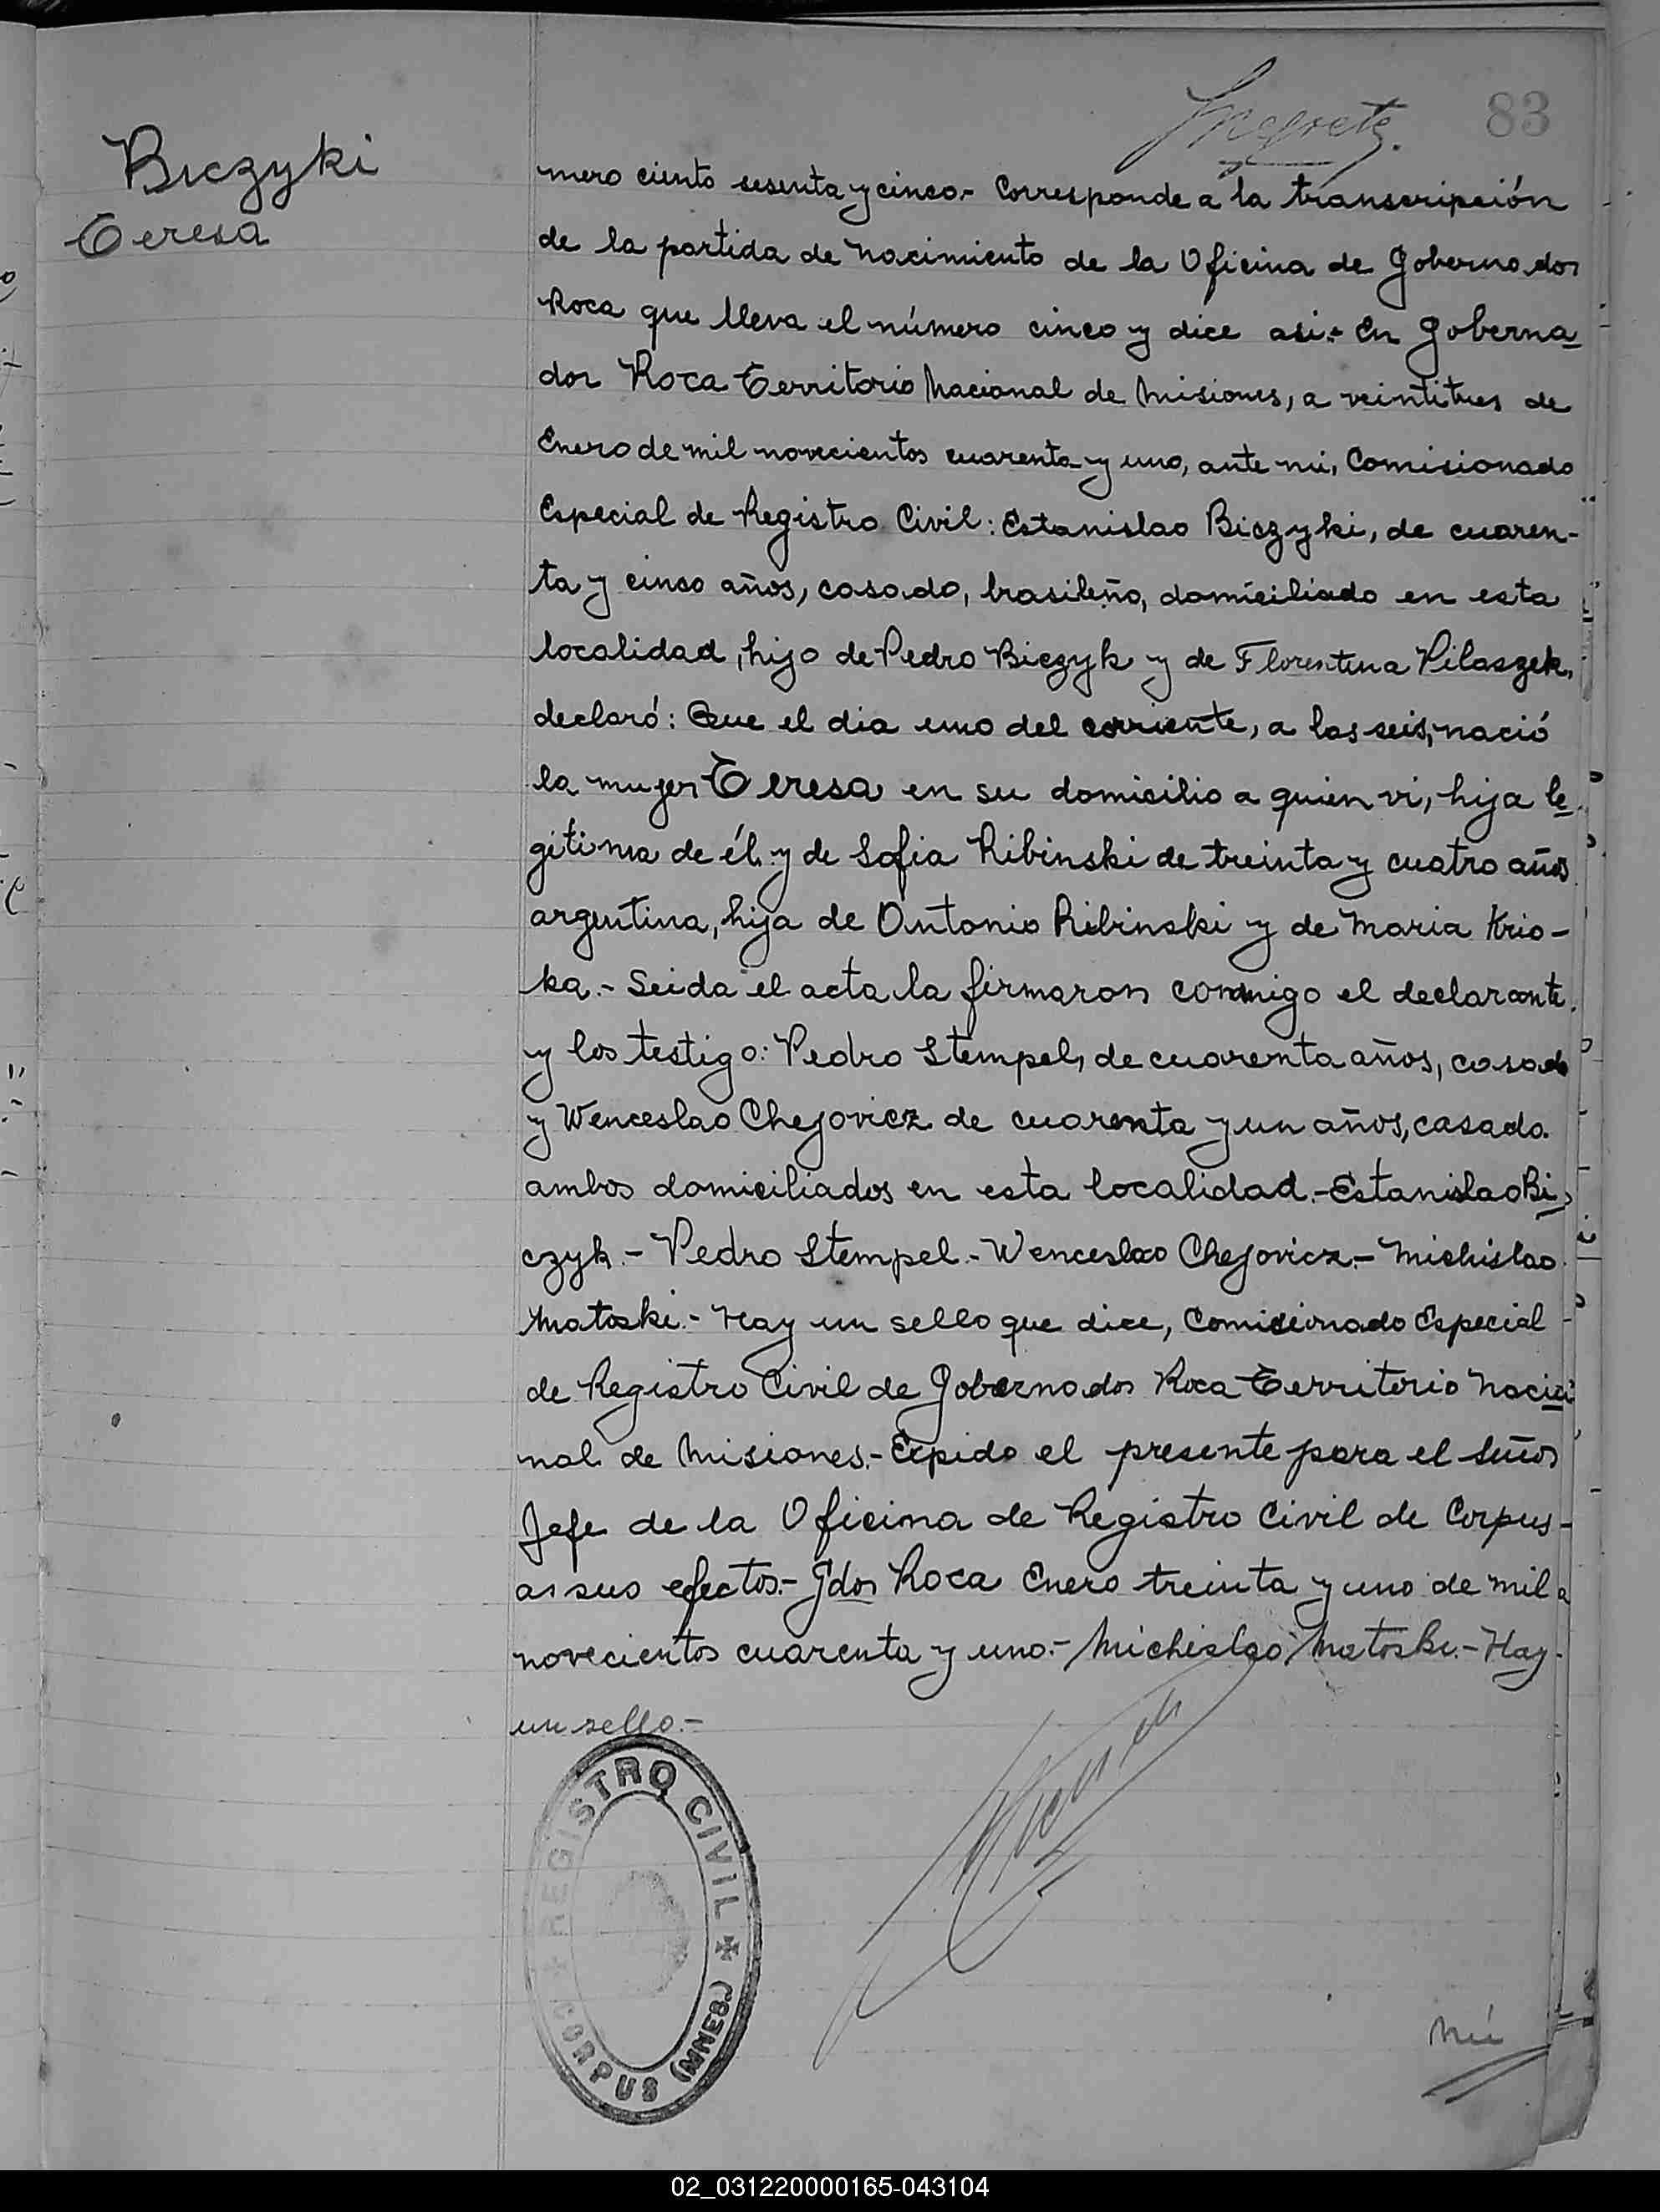 83
Biczyki
Teresa
mero ciento sesenta y cinco.- Corresponde a la transcripción
de la partida de nacimiento de la Oficina de Gobernador
Roca que lleva el número cinco y dice asi:- En Goberna
dor Roca Territorio Nacional de Misiones, a veintitres de
Enero de mil novecientos cuarenta y uno, ante mi, Comisionado
Especial de Registro Civil: Estanislao Biczyki, de cuaren-
ta y cinco años, casado, brasileño, domiciliado en esta
localidad, hijo de Pedro Biczyk y de Florentina Pilaszek,
declaró: Que el dia uno del corriente, a las seis, nació
la mujer Teresa en su domicilio a quien vi, hija le
gitima de él y de Sofia Ribinski de treinta y cuatro años
argentina, hija de Antonio Ribinski y de Maria Krio-
ka.- Leida el acta la firmaron conmigo el declarante
y los testigo: Pedro Stempel, de cuarenta años, casado
y Wenceslao Chejovicz de cuarenta y un años, casado
ambos domiciliados en esta localidad.- Estanislao Bi
czyk.- Pedro Stempel.- Wenceslao Chejovicz.- Michislao
Matoski.- Hay un sello que dice, Comisionado Especial
de Registro Civil de Gobernador Roca Territorio Nacio
nal de Misiones.- Expido el presente para el señor
Jefe de la Oficina de Registro Civil de Corpus-
a sus efectos.- Gdor Roca Enero treinta y uno de mil
novecientos cuarenta y uno.- Michislao Matoski.- Hay
un sello.-
REGISTRO CIVIL
CORPUS (MNES.)
Nú
02_031220000165-043104